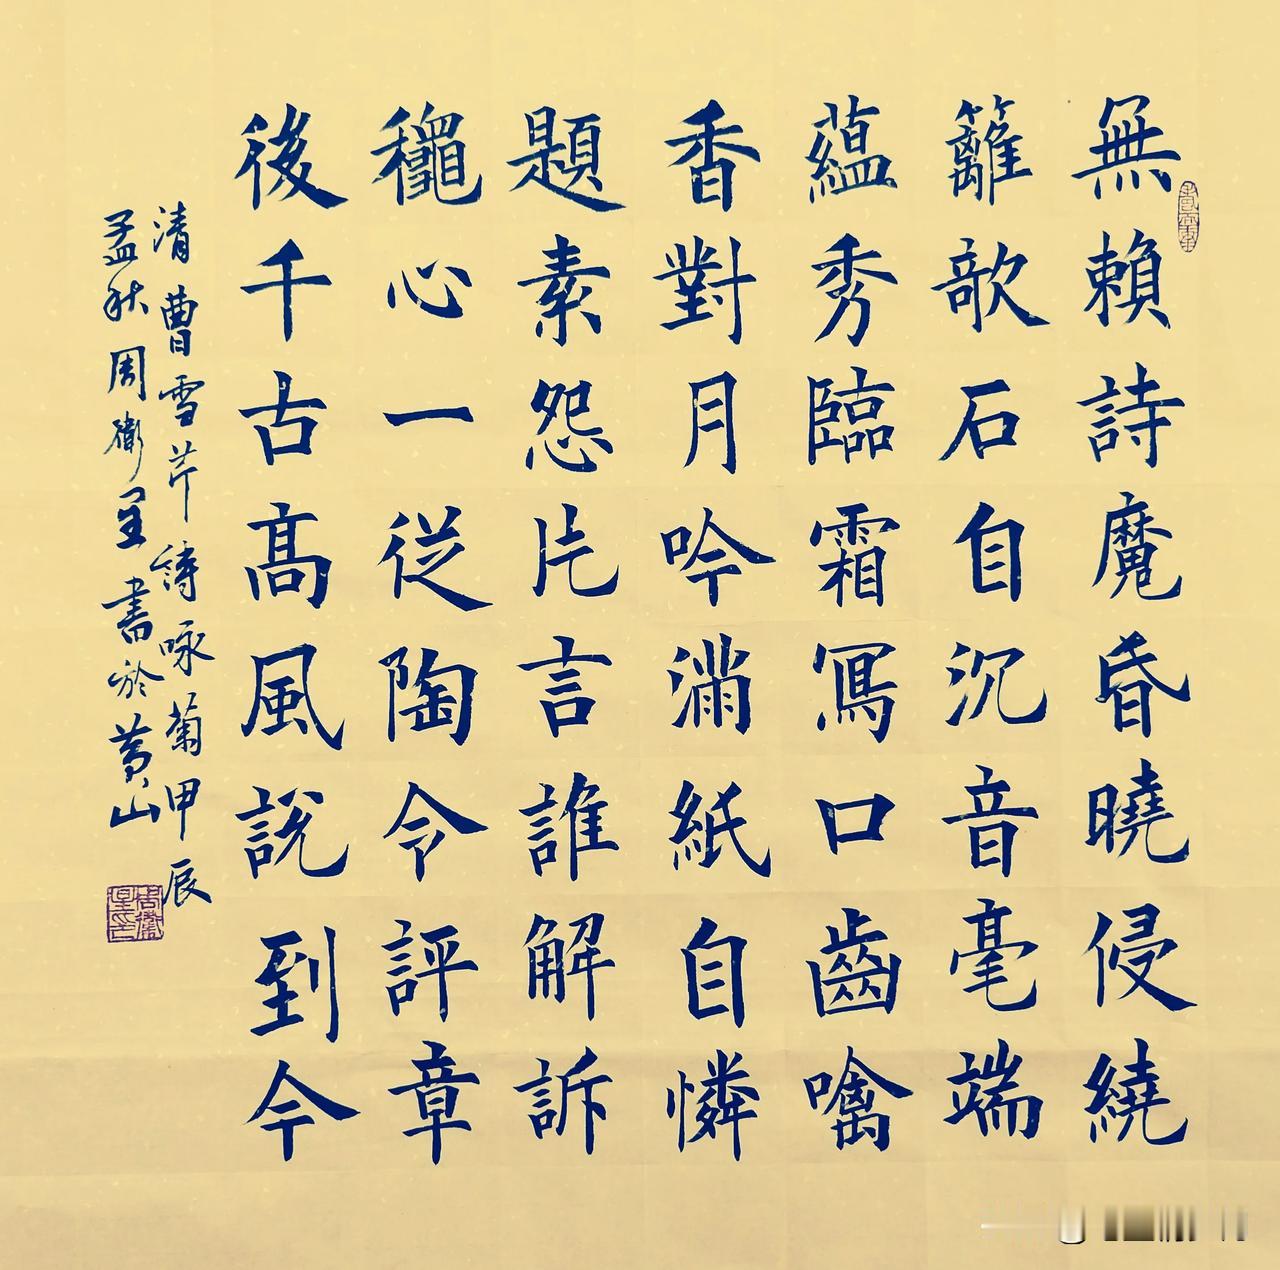 無賴詩魔昏曉侵繞
籬歌石自沉音毫端
蘊秀臨霜寫口齒噙
香對月吟滿紙自憐
題素怨片言誰解訴
穐心一従陶令評章
後千古髙風說到今
清曹雪芹詩咏菊甲辰
孟秋周衛星書於黄山